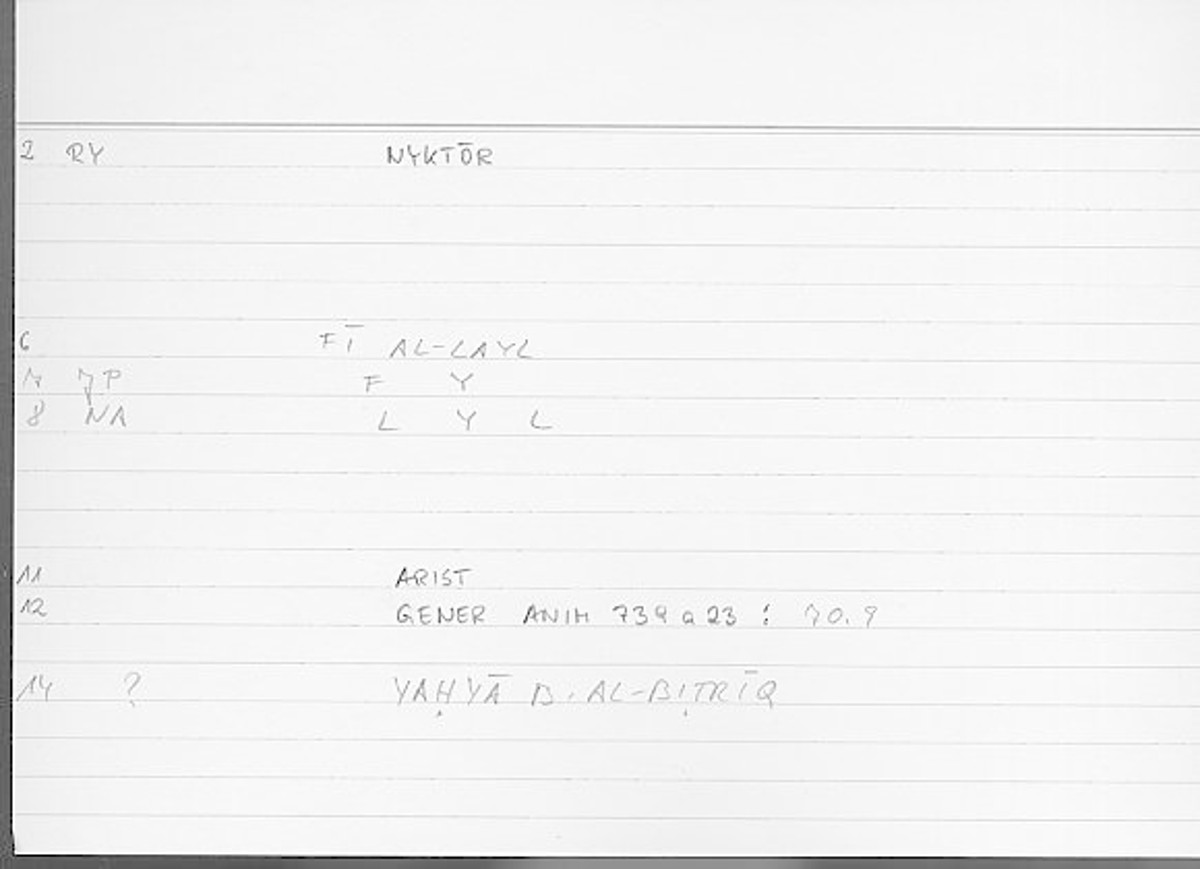 2 RY NYKTŌR
6 FĪ AL-LAYL
7 P F Y
8 NA L Y L
11 ARIST
12 GENER ANIM 739 a 23 : 70.9
14 ? YAḤYĀ B. AL-BIṬRĪQ